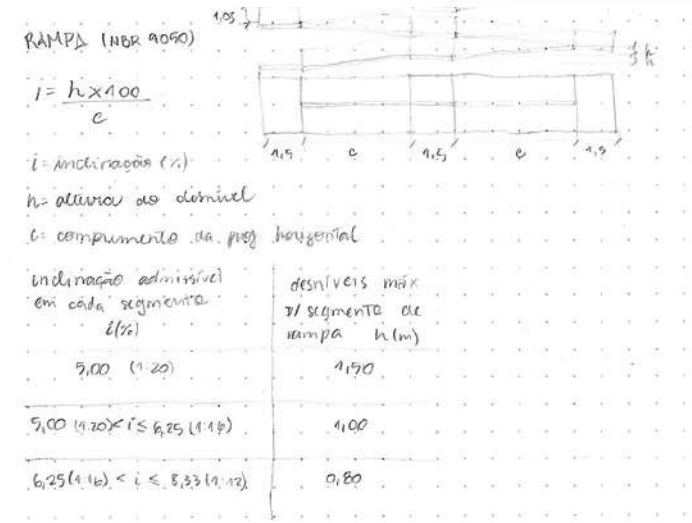 1,05
RAMPA (NBR 9050)
h
h
i = h x 100
c
1,5 c 1,5 c 1,5
i = inclinação (%)
h = altura do desnível
c = comprimento da proj horizontal
inclinação admissível
em cada segmento
i(%)
desníveis máx
p/ segmento de
rampa h(m)
5,00 (1:20) 1,50
5,00 (1:20) < i ≤ 6,25 (1:16) 1,00
6,25 (1:16) < i ≤ 8,33 (1:12) 0,80